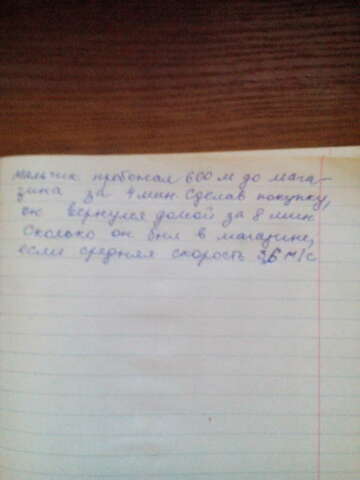 мальчик пробежал 600 м до мага-
зина за 4 мин. Сделав покупку,
он вернулся домой за 8 мин
Сколько он был в магазине,
если средняя скорость 3,6 м/с